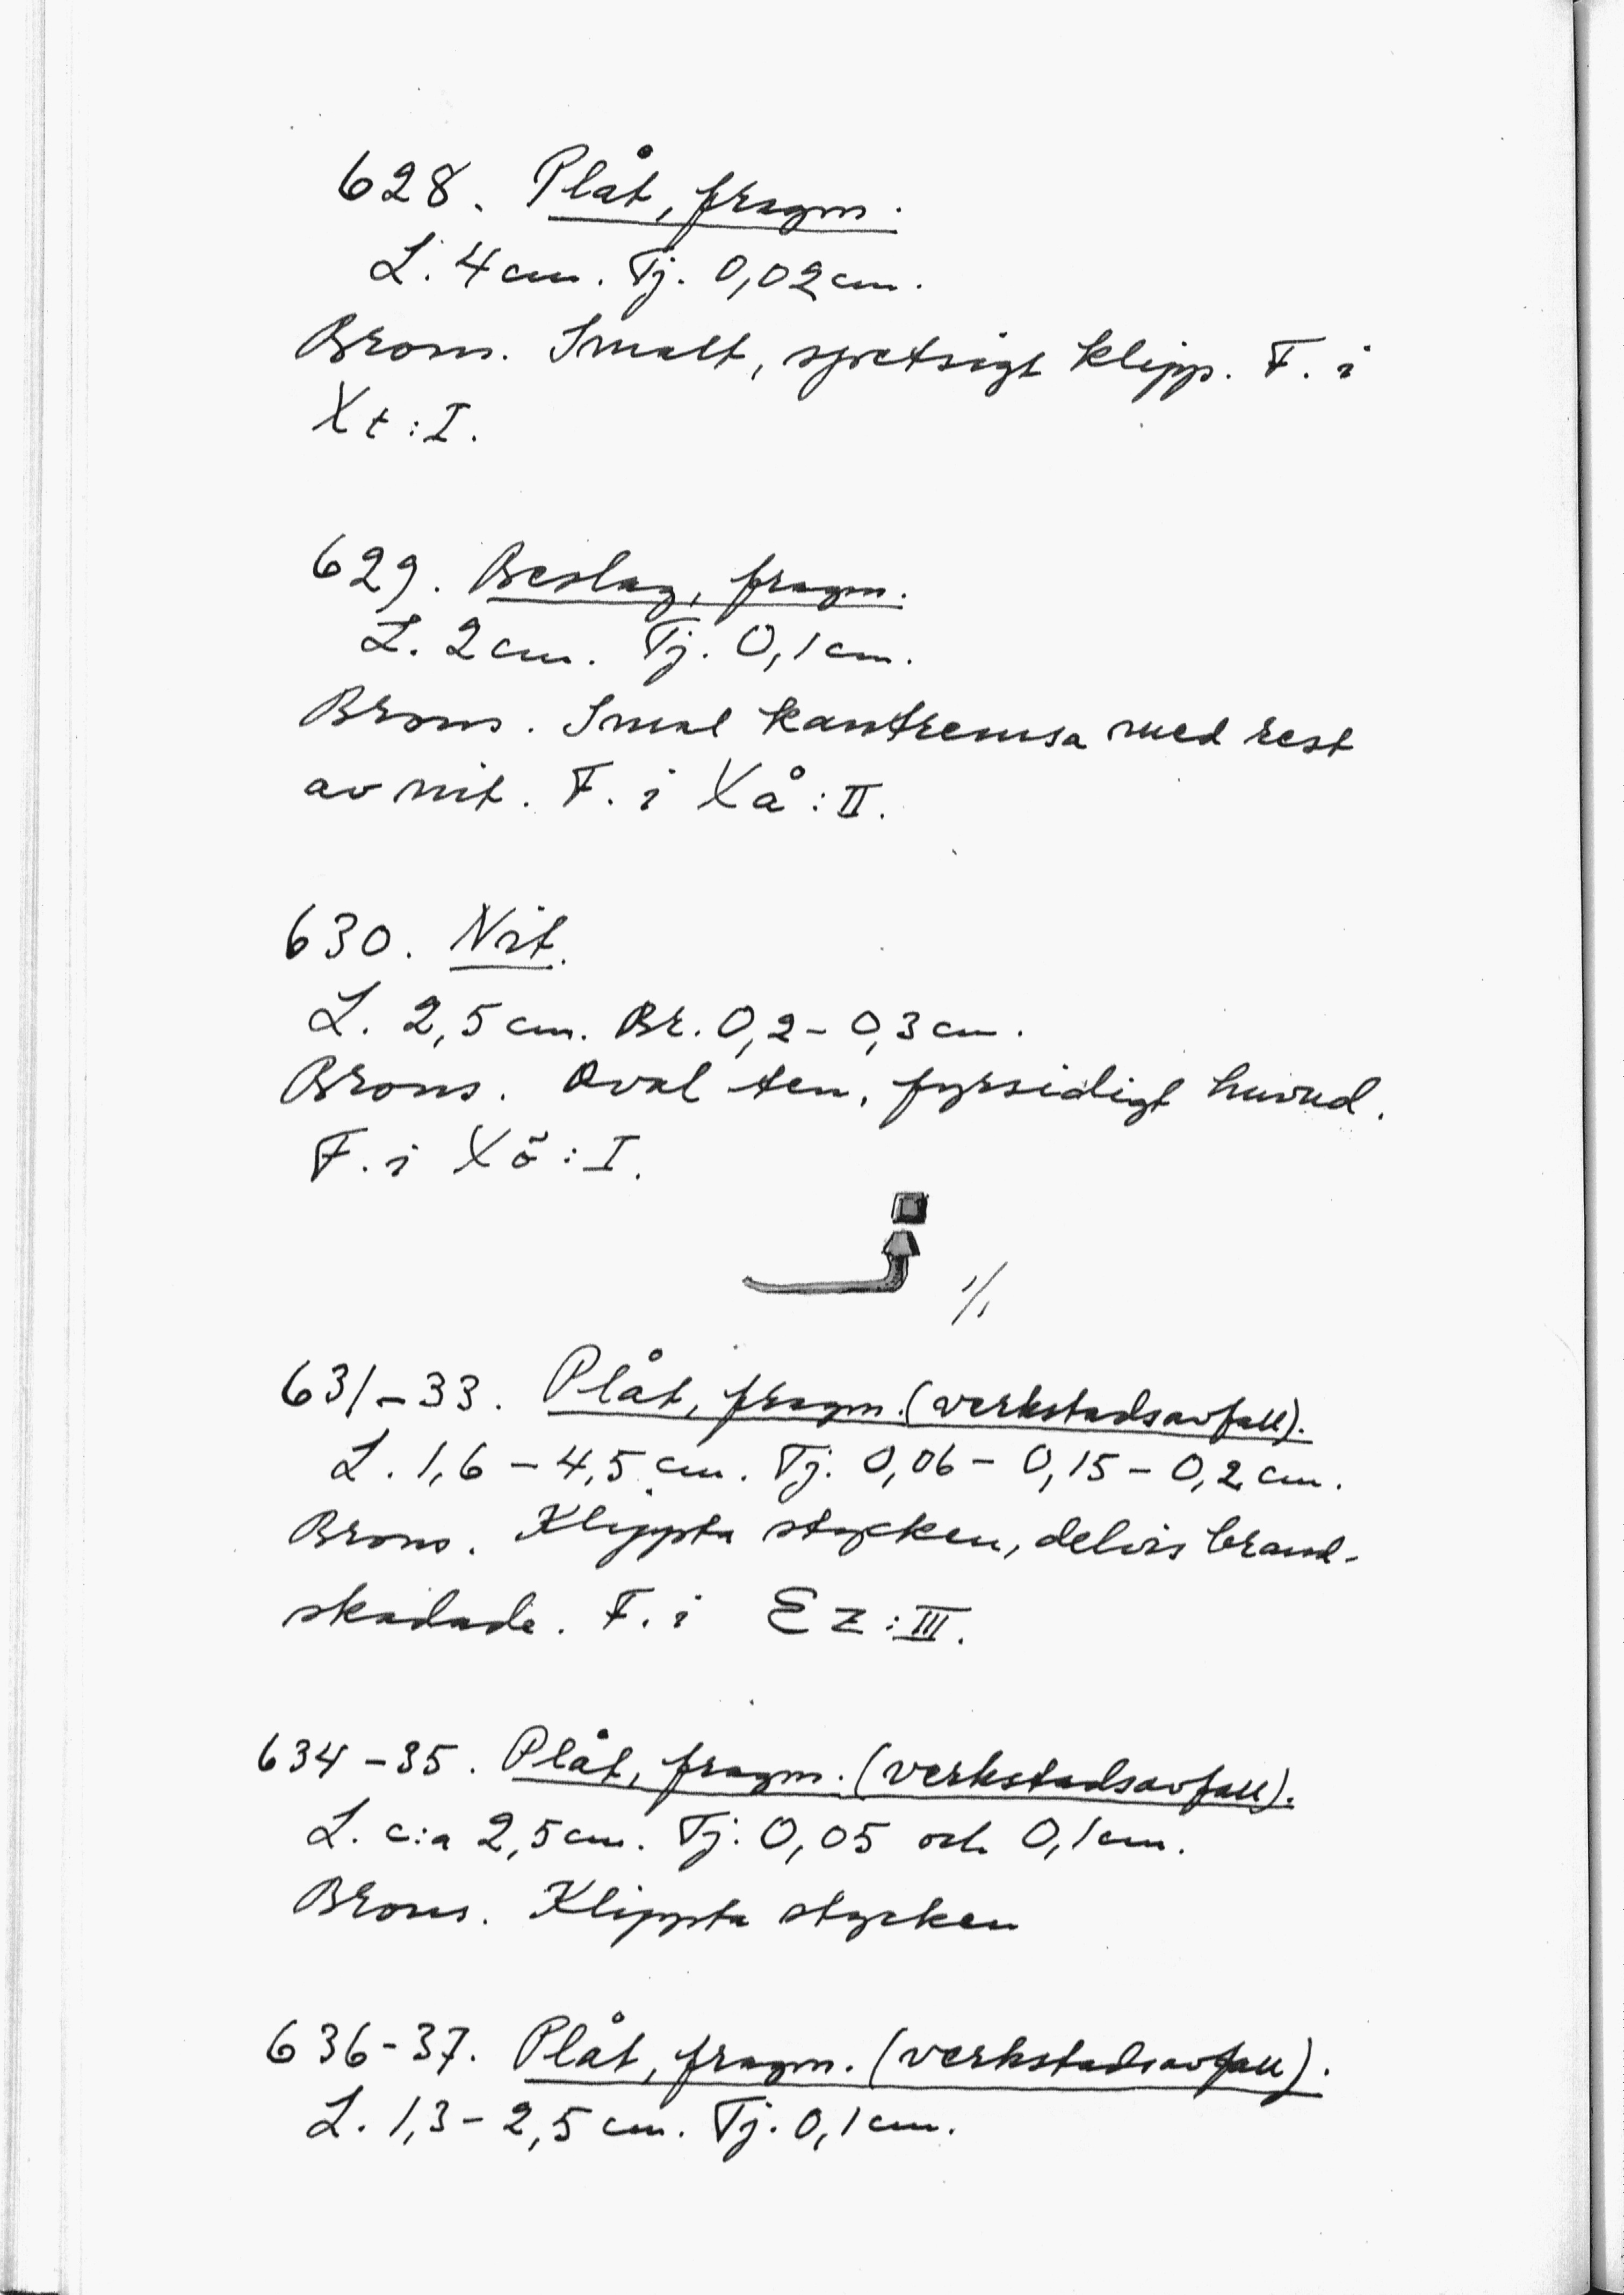 628. Plåt, fragm.
L. 4 cm. Tj. 0,02 cm.
Brons. Smalt, spetsigt klipp. F. i
Xt:I.
629. Beslag, fragm.
L. 2 cm. Tj. 0,1 cm.
Brons. Smal kantremsa med rest
av nit. F. i Xå:II.
630. Nit.
L. 2,5 cm. Br. 0,2-0,3 cm.
Brons. Oval ten, fyrsidigt huvud.
F. i Xö:I.
1/1
631-33. Plåt, fragm. (verkstadsavfall).
L. 1,6-4,5 cm. Tj. 0,06-0,15-0,2 cm.
Brons. Klippta stycken, delvis brand-
skadade. F. i Ez:III.
634-35. Plåt, fragm. (verkstadsavfall).
L. c:a 2,5 cm. Tj. 0,05 och 0,1 cm.
Brons. Klippta stycken
636-37. Plåt, fragm. (verkstadsavfall).
L. 1,3-2,5 cm. Tj. 0,1 cm.